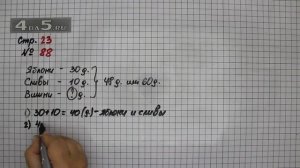 5.ru
Стр. 23
№ 88
Яблони - 30 д.
Сливы - 10 д. } 48 д. или 60 д.
Вишни - ? д.
1) 30+10=40 (д.) - яблони и сливы
2) 4